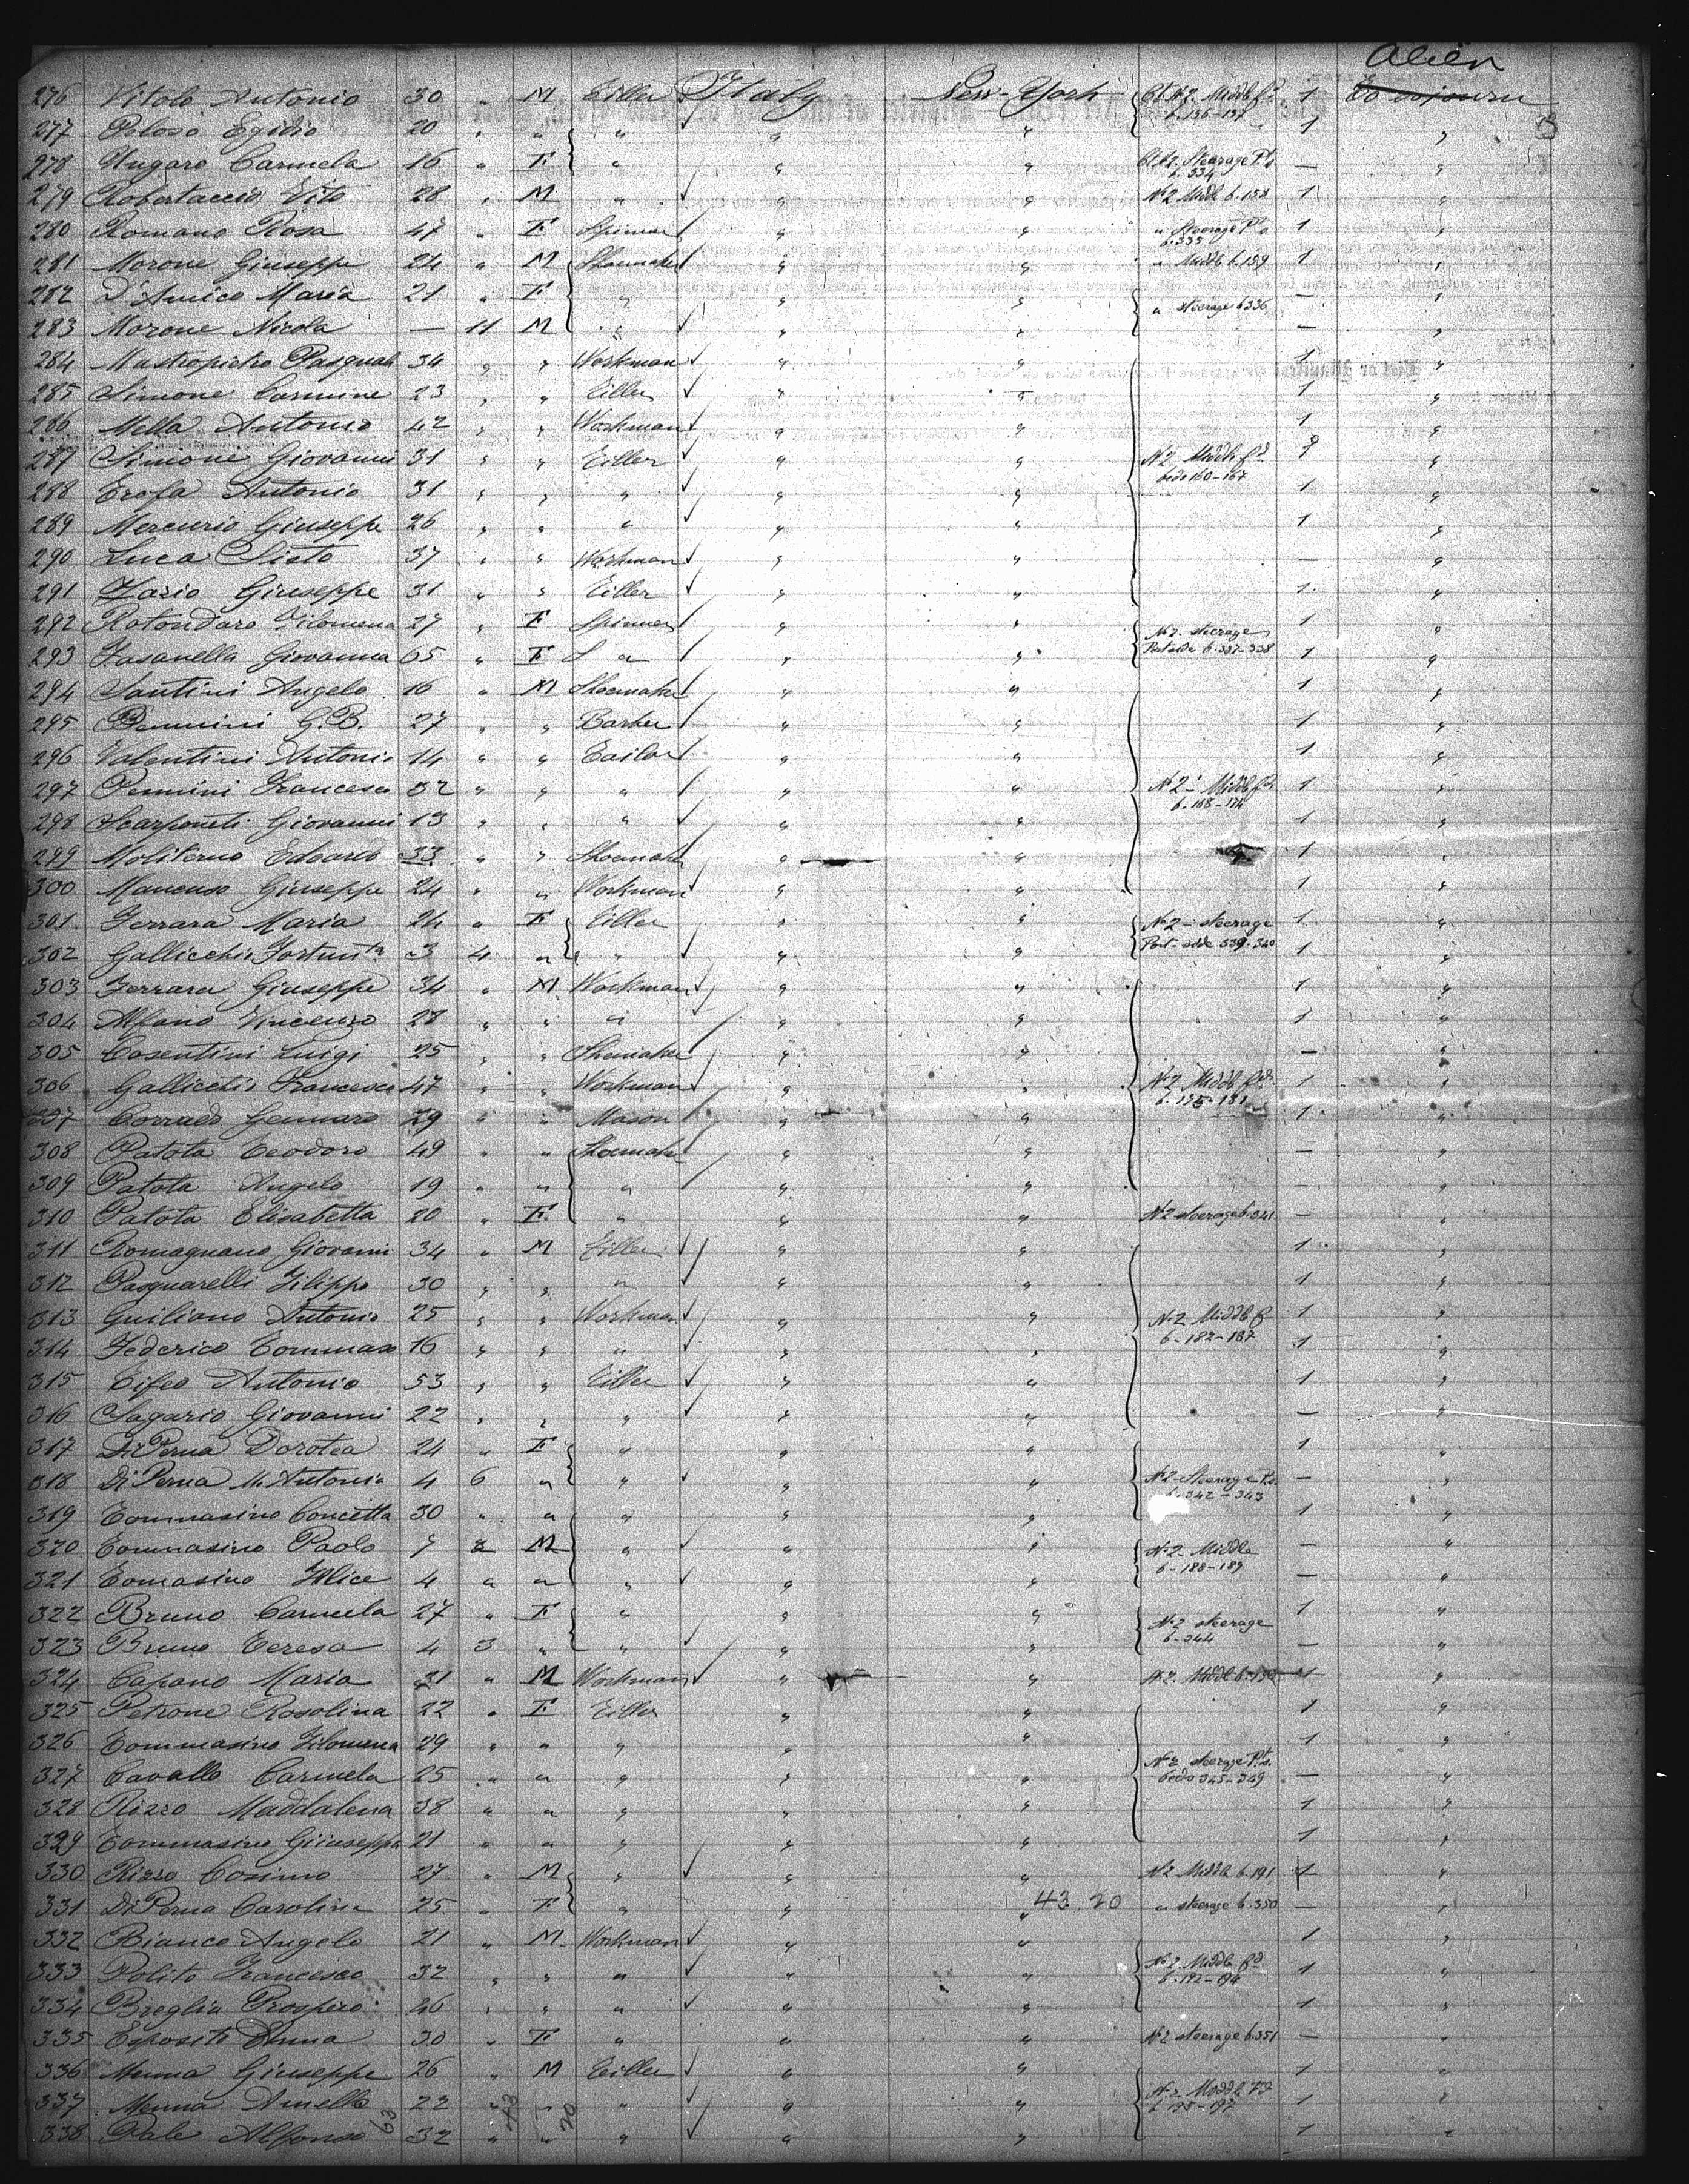 Alien
276 Vitolo Antonio 30 " M Tiller Italy New-York Ct. No 2. Middle fd. b. 136-137 1 To sojourn
277 Peloso Egidio 20 " " " " " 1 "
278 Ungaro Carmela 16 " F " " " Ct. No 2. Steerage P.t s. b. 334 — "
279 Robertaccio Vito 28 " M " " " No 2 Middl b. 158 1 "
280 Romano Rosa 47 " F Spinner " " " Steerage P.t s b. 335 1 "
281 Morone Giuseppe 24 " M Shoemaker " " " Middl b. 159 1 "
282 D'Amico Maria 21 " F " " " " steerage b 336 — "
283 Morone Nicola — 11 M " " " — "
284 Mastropietro Pasquale 34 " " Workman " " 1 "
285 Simone Carmine 23 " " Tiller " " 1 "
286 Mella Antonio 42 " " Workman " " 1 "
287 Simione Giovanni 31 " " Tiller " " No 2 Middle fd beds 160-167 "
288 Trofa Antonio 31 " " " " " 1 "
289 Mercurio Giuseppe 26 " " " " " 1 "
290 Luca Sisto 37 " " Workman " " — "
291 Fasio Giuseppe 31 " " Tiller " " 1 "
292 Rotondaro Filomena 27 " F Spinner " " No 2. steerage Portside b. 337-338 1 "
293 Fasanella Giovanna 65 " F " " " 1 "
294 Santini Angelo 16 " M Shoemaker " " 1 "
295 Pennini G. B. 27 " " Barber " " 1 "
296 Valentini Antonio 14 " " Tailor " " 1 "
297 Pennini Francesco 32 " " " " " No 2 Middl fd b. 168-174 1 "
298 Scarponeti Giovanni 13 " " " " " 1 "
299 Moliterno Edoardo 33 " " Shoemaker " " 1 "
300 Mancuso Giuseppe 24 " " Workman " " 1 "
301 Ferrara Maria 24 " F Tiller " " No 2 - steerage Port-side 339-340 1 "
302 Gallicchio Fortunta 3 4 " " " " 1 "
303 Ferrara Giuseppe 34 " M Workman " " 1 "
304 Alfano Vincenzo 28 " " " " " 1 "
305 Cosentini Luigi 25 " " Shemaker " " — "
306 Gallicchio Francesco 47 " " Workman " " No 2 Middl fd b. 175-181 1 "
307 Corrado Gennaro 29 " " Mason " " 1 "
308 Patota Teodoro 49 " " Shoemaker " " — "
309 Patota Angelo 19 " " " " " — "
310 Patota Elisabetta 20 " F. " " " No 2 steerage b. 341 — "
311 Romagnano Giovanni 34 " M Tiller " " 1 "
312 Pasquarelli Filippo 30 " " " " " 1 "
313 Guiliano Antonio 25 " " Workman " " No 2 Middl f b. 182-187 1 "
314 Federico Tommaso 16 " " " " " 1 "
315 Tifeo Antonio 53 " " Tiller " " 1 "
316 Sagario Giovanni 22 " " " " " — "
317 Di Perna Dorotea 24 " F " " " 1 "
318 Di Perna M. Antonia 4 6 " " " " No 2 - Steerage P.s. b. 342-343 — "
319 Tommasino Concetta 30 " " " " " 1 "
320 Tommasino Paolo 7 2 M " " " No 2. Middle b-188-189 — "
321 Tomasino 4 " " " " " — "
322 Bruno Carmela 27 " F " " " No 2 steerage b. 344 1 "
323 Bruno Teresa 4 3 " " " " — "
324 Capano Maria 31 " M Workman " " No 2. Middl b. 190 1 "
325 Petrone Rosolina 22 " F Tiller " " 1 "
326 Tommasino Filomena 29 " " " " " 1 "
327 Cavallo Carmela 25 " " " " " No 2 steerage P.t s. beds 345-349 — "
328 Rizzo Maddalena 38 " " " " " 1 "
329 Tommasino Giuseppa 21 " " " " " 1 "
330 Rizzo Cosimo 27 " M " " " No 2 Middl b. 191 1 "
331 Di Perna Carolina 25 " F " " " 43.20 " steerage b. 350 — "
332 Bianco Angelo 21 " M. Workman " " 1 "
333 Polito Francesco 32 " " " " " No 2 Middle fd b. 192-194 1 "
334 Breglia Prospero 26 " " " " " 1 "
335 Esposito Anna 30 " F " " " No 2 steerage b. 351 — "
336 Menna Giuseppe 26 " M Tiller " " 1 "
337 Menna Aniello 22 " " " " " No 2 Middle Fd b 195-197 1 "
338 Pale Alfonso 32 " " " " " 1 "
63 43 20